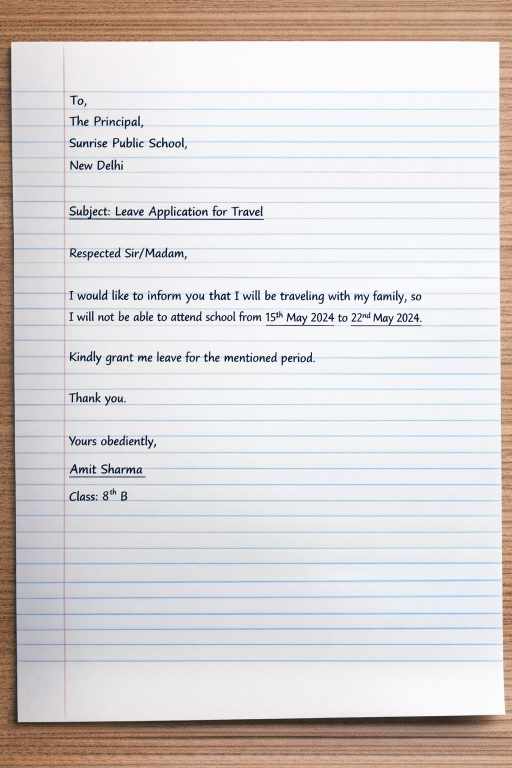 To,
The Principal,
Sunrise Public School,
New Delhi
Subject: Leave Application for Travel
Respected Sir/Madam,
I would like to inform you that I will be traveling with my family, so
I will not be able to attend school from 15th May 2024 to 22nd May 2024.
Kindly grant me leave for the mentioned period.
Thank you.
Yours obediently,
Amit Sharma
Class: 8th B